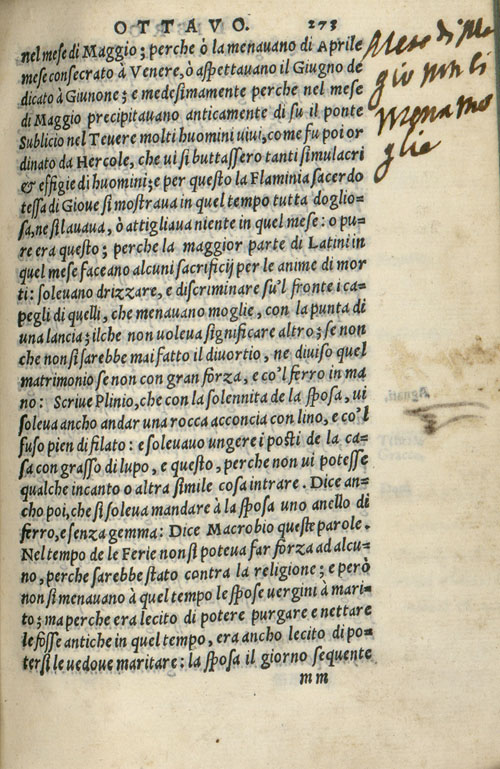 OTTAVO. 273
nel mese di Maggio; perche ò la menavano di Aprile
mese consecrato à Venere, ò aspettavano il Giugno de
dicato à Giunone; e medesimamente perche nel mese
di Maggio precipitavano anticamente di su il ponte
Sublicio nel Tevere molti huomini vivi, come fu poi or
dinato da Hercole, che vi si buttassero tanti simulacri
& effigie di huomini; e per questo la Flaminia sacerdo
tessa di Giove si mostrava in quel tempo tutta doglio=
sa, ne si lavava, ò attigliava niente in quel mese: o pu=
re era questo; perche la maggior parte di Latini in
quel mese faceano alcuni sacrificij per le anime di mor
ti: solevano drizzare, e discriminare su'l fronte i ca=
pegli di quelli, che menavano moglie, con la punta di
una lancia; ilche non voleva significare altro; se non
che non si sarebbe mai fatto il divortio, ne diviso quel
matrimonio se non con gran forza, e co'l ferro in ma
no: Scrive Plinio, che con la solennita de la sposa, vi
soleva ancho andar una rocca acconcia con lino, e co'l
fuso pien di filato: e solevavo ungere i posti de la ca=
sa con grasso di lupo, e questo, perche non vi potesse
qualche incanto o altra simile cosa intrare. Dice an=
cho poi, che si soleva mandare à la sposa uno anello di
ferro, e senza gemma: Dice Macrobio queste parole.
Nel tempo de le Ferie non si poteva far forza ad alcu=
no, perche sarebbe stato contra la religione; e però
non si menavano à quel tempo le spose vergini à mari=
to; ma perche era lecito di potere purgare e nettare
le fosse antiche in quel tempo, era ancho lecito di po=
tersi le vedove maritare: la sposa il giorno sequente
mm
Mese di Ma
gio non li
mena mo
glie